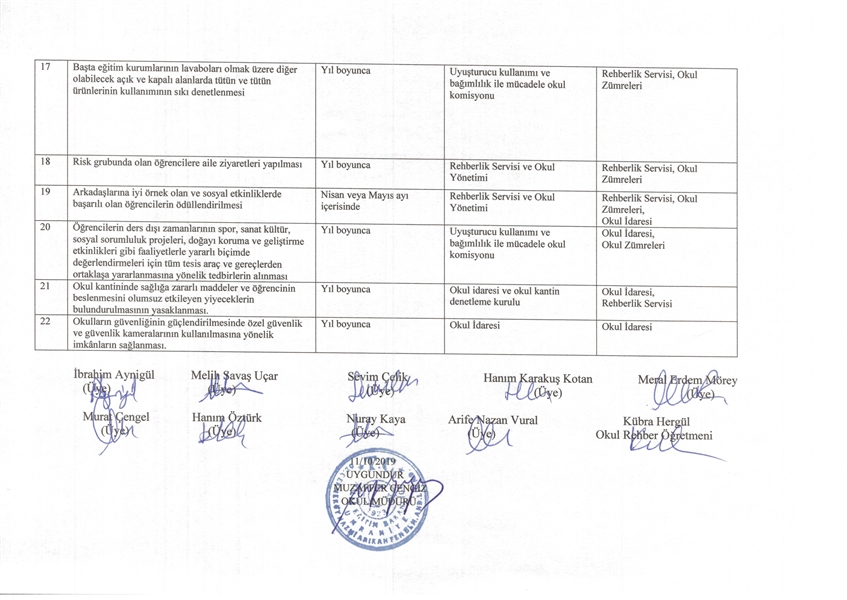 17
Başta eğitim kurumlarının lavaboları olmak üzere diğer
olabilecek açık ve kapalı alanlarda tütün ve tütün
ürünlerinin kullanımının sıkı denetlenmesi
Yıl boyunca
Uyuşturucu kullanımı ve
bağımlılık ile mücadele okul
komisyonu
Rehberlik Servisi, Okul
Zümreleri
18
Risk grubunda olan öğrencilere aile ziyaretleri yapılması
Yıl boyunca
Rehberlik Servisi ve Okul
Yönetimi
Rehberlik Servisi, Okul
Zümreleri
19
Arkadaşlarına iyi örnek olan ve sosyal etkinliklerde
başarılı olan öğrencilerin ödüllendirilmesi
Nisan veya Mayıs ayı
içerisinde
Rehberlik Servisi ve Okul
Yönetimi
Rehberlik Servisi, Okul
Zümreleri,
Okul İdaresi
20
Öğrencilerin ders dışı zamanlarının spor, sanat kültür,
sosyal sorumluluk projeleri, doğayı koruma ve geliştirme
etkinlikleri gibi faaliyetlerle yararlı biçimde
değerlendirmeleri için tüm tesis araç ve gereçlerden
ortaklaşa yararlanmasına yönelik tedbirlerin alınması
Yıl boyunca
Uyuşturucu kullanımı ve
bağımlılık ile mücadele okul
komisyonu
Okul İdaresi,
Okul Zümreleri
21
Okul kantininde sağlığa zararlı maddeler ve öğrencinin
beslenmesini olumsuz etkileyen yiyeceklerin
bulundurulmasının yasaklanması.
Yıl boyunca
Okul idaresi ve okul kantin
denetleme kurulu
Okul İdaresi,
Rehberlik Servisi
22
Okulların güvenliğinin güçlendirilmesinde özel güvenlik
ve güvenlik kameralarının kullanılmasına yönelik
imkânların sağlanması.
Yıl boyunca
Okul İdaresi
Okul İdaresi
İbrahim Aynigül Melih Savaş Uçar Sevim Çelik Hanım Karakuş Kotan Meral Erdem Mörey
(Üye) (Üye) (Üye) (Üye) (Üye)
Murat Çengel Hanım Öztürk Nuray Kaya Arife Nazan Vural Kübra Hergül
(Üye) (Üye) (Üye) (Üye) Okul Rehber Öğretmeni
11/10/2019
UYGUNDUR
MUZAFFER CENGİZ
OKUL MÜDÜRÜ